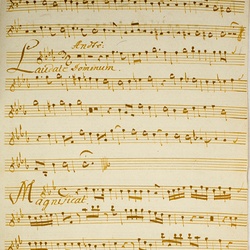 Andte.
Laudate Dominum.
Magnificat.